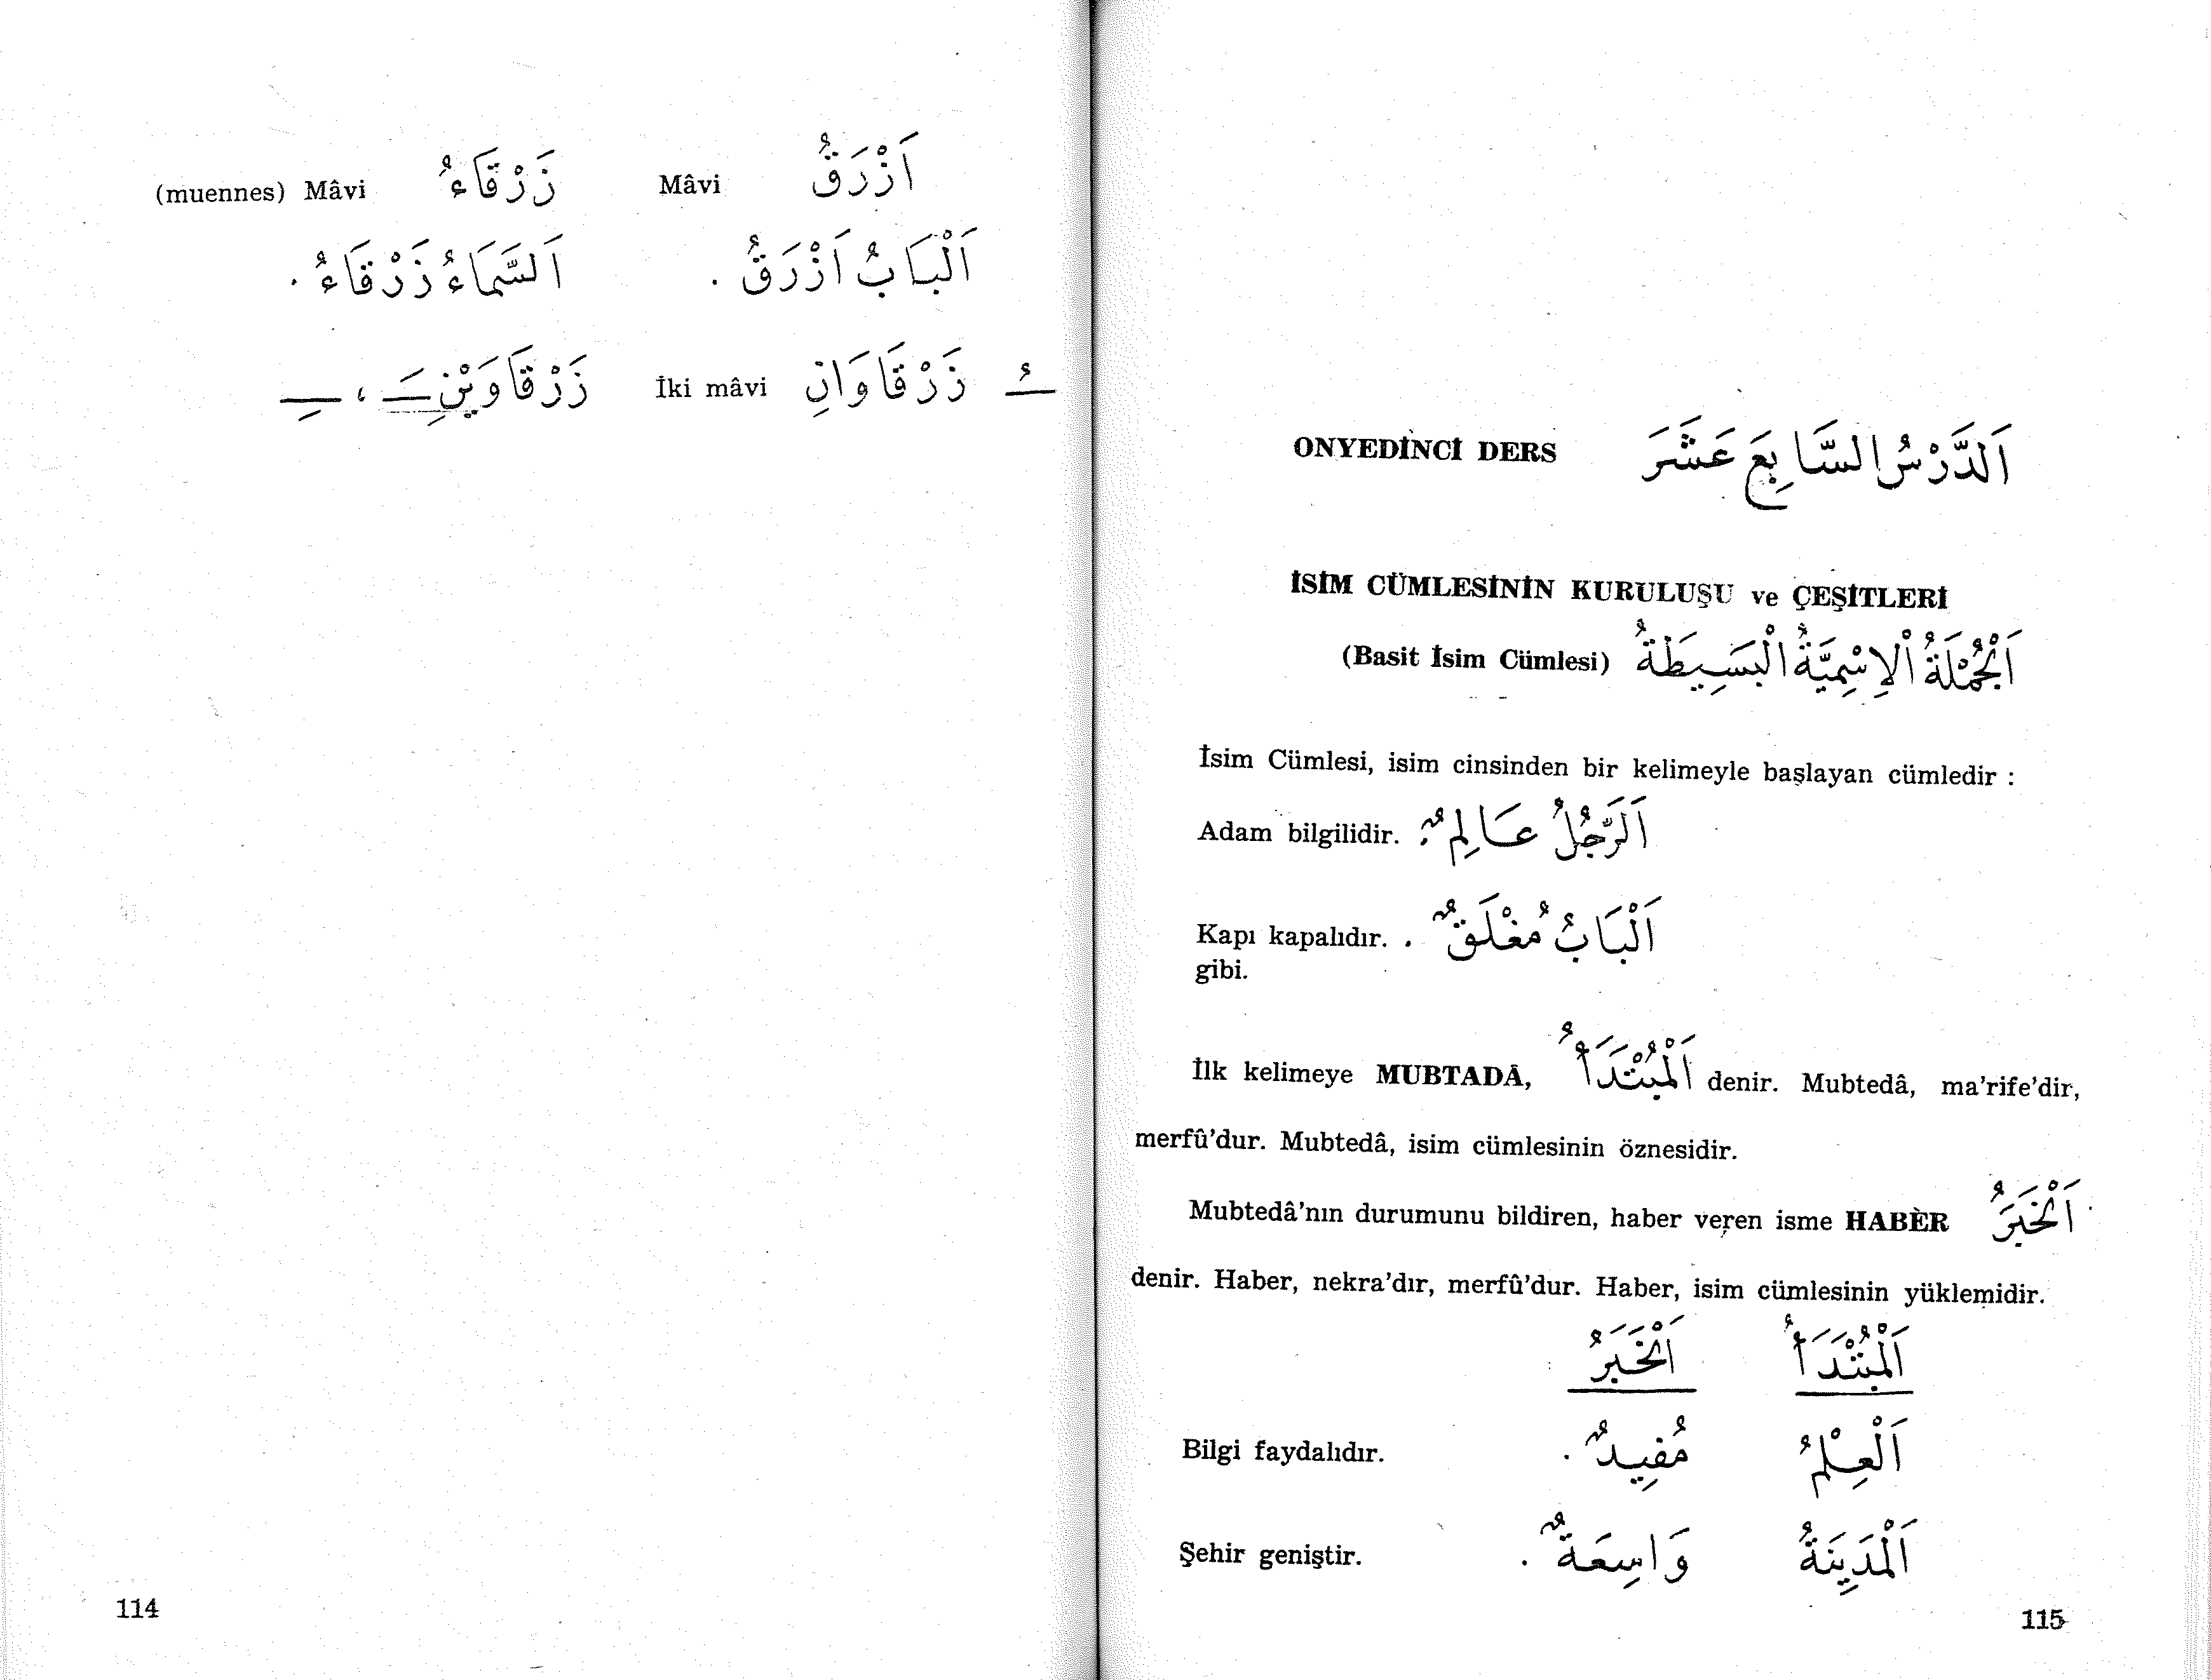 (muennes) Mâvi زَرْقَاءُ Mâvi اَزْرَقُ
اَلسَّمَاءُ زَرْقَاءُ . اَلْبَابُ اَزْرَقُ .
ـُ زَرْقَاوَانِ İki mâvi زَرْقَاوَيْنِ ـَ ، ـِ
114
ONYEDİNCİ DERS اَلدَّرْسُ السَّابِعَ عَشَرَ
İSİM CÜMLESİNİN KURULUŞU ve ÇEŞİTLERİ
(Basit İsim Cümlesi) اَلْجُمْلَةُ الْاِسْمِيَّةُ الْبَسِيطَةُ
İsim Cümlesi, isim cinsinden bir kelimeyle başlayan cümledir :
Adam bilgilidir. اَلرَّجُلُ عَالِمٌ .
Kapı kapalıdır. اَلْبَابُ مُغْلَقٌ .
gibi.
İlk kelimeye MUBTADÂ, اَلْمُبْتَدَأُ denir. Mubtedâ, ma'rife'dir,
merfû'dur. Mubtedâ, isim cümlesinin öznesidir.
Mubtedâ'nın durumunu bildiren, haber veren isme HABER اَلْخَبَرُ
denir. Haber, nekra'dır, merfû'dur. Haber, isim cümlesinin yüklemidir.
اَلْمُبْتَدَأُ اَلْخَبَرُ
Bilgi faydalıdır. اَلْعِلْمُ مُفِيدٌ .
Şehir geniştir. اَلْمَدِينَةُ وَاسِعَةٌ .
115